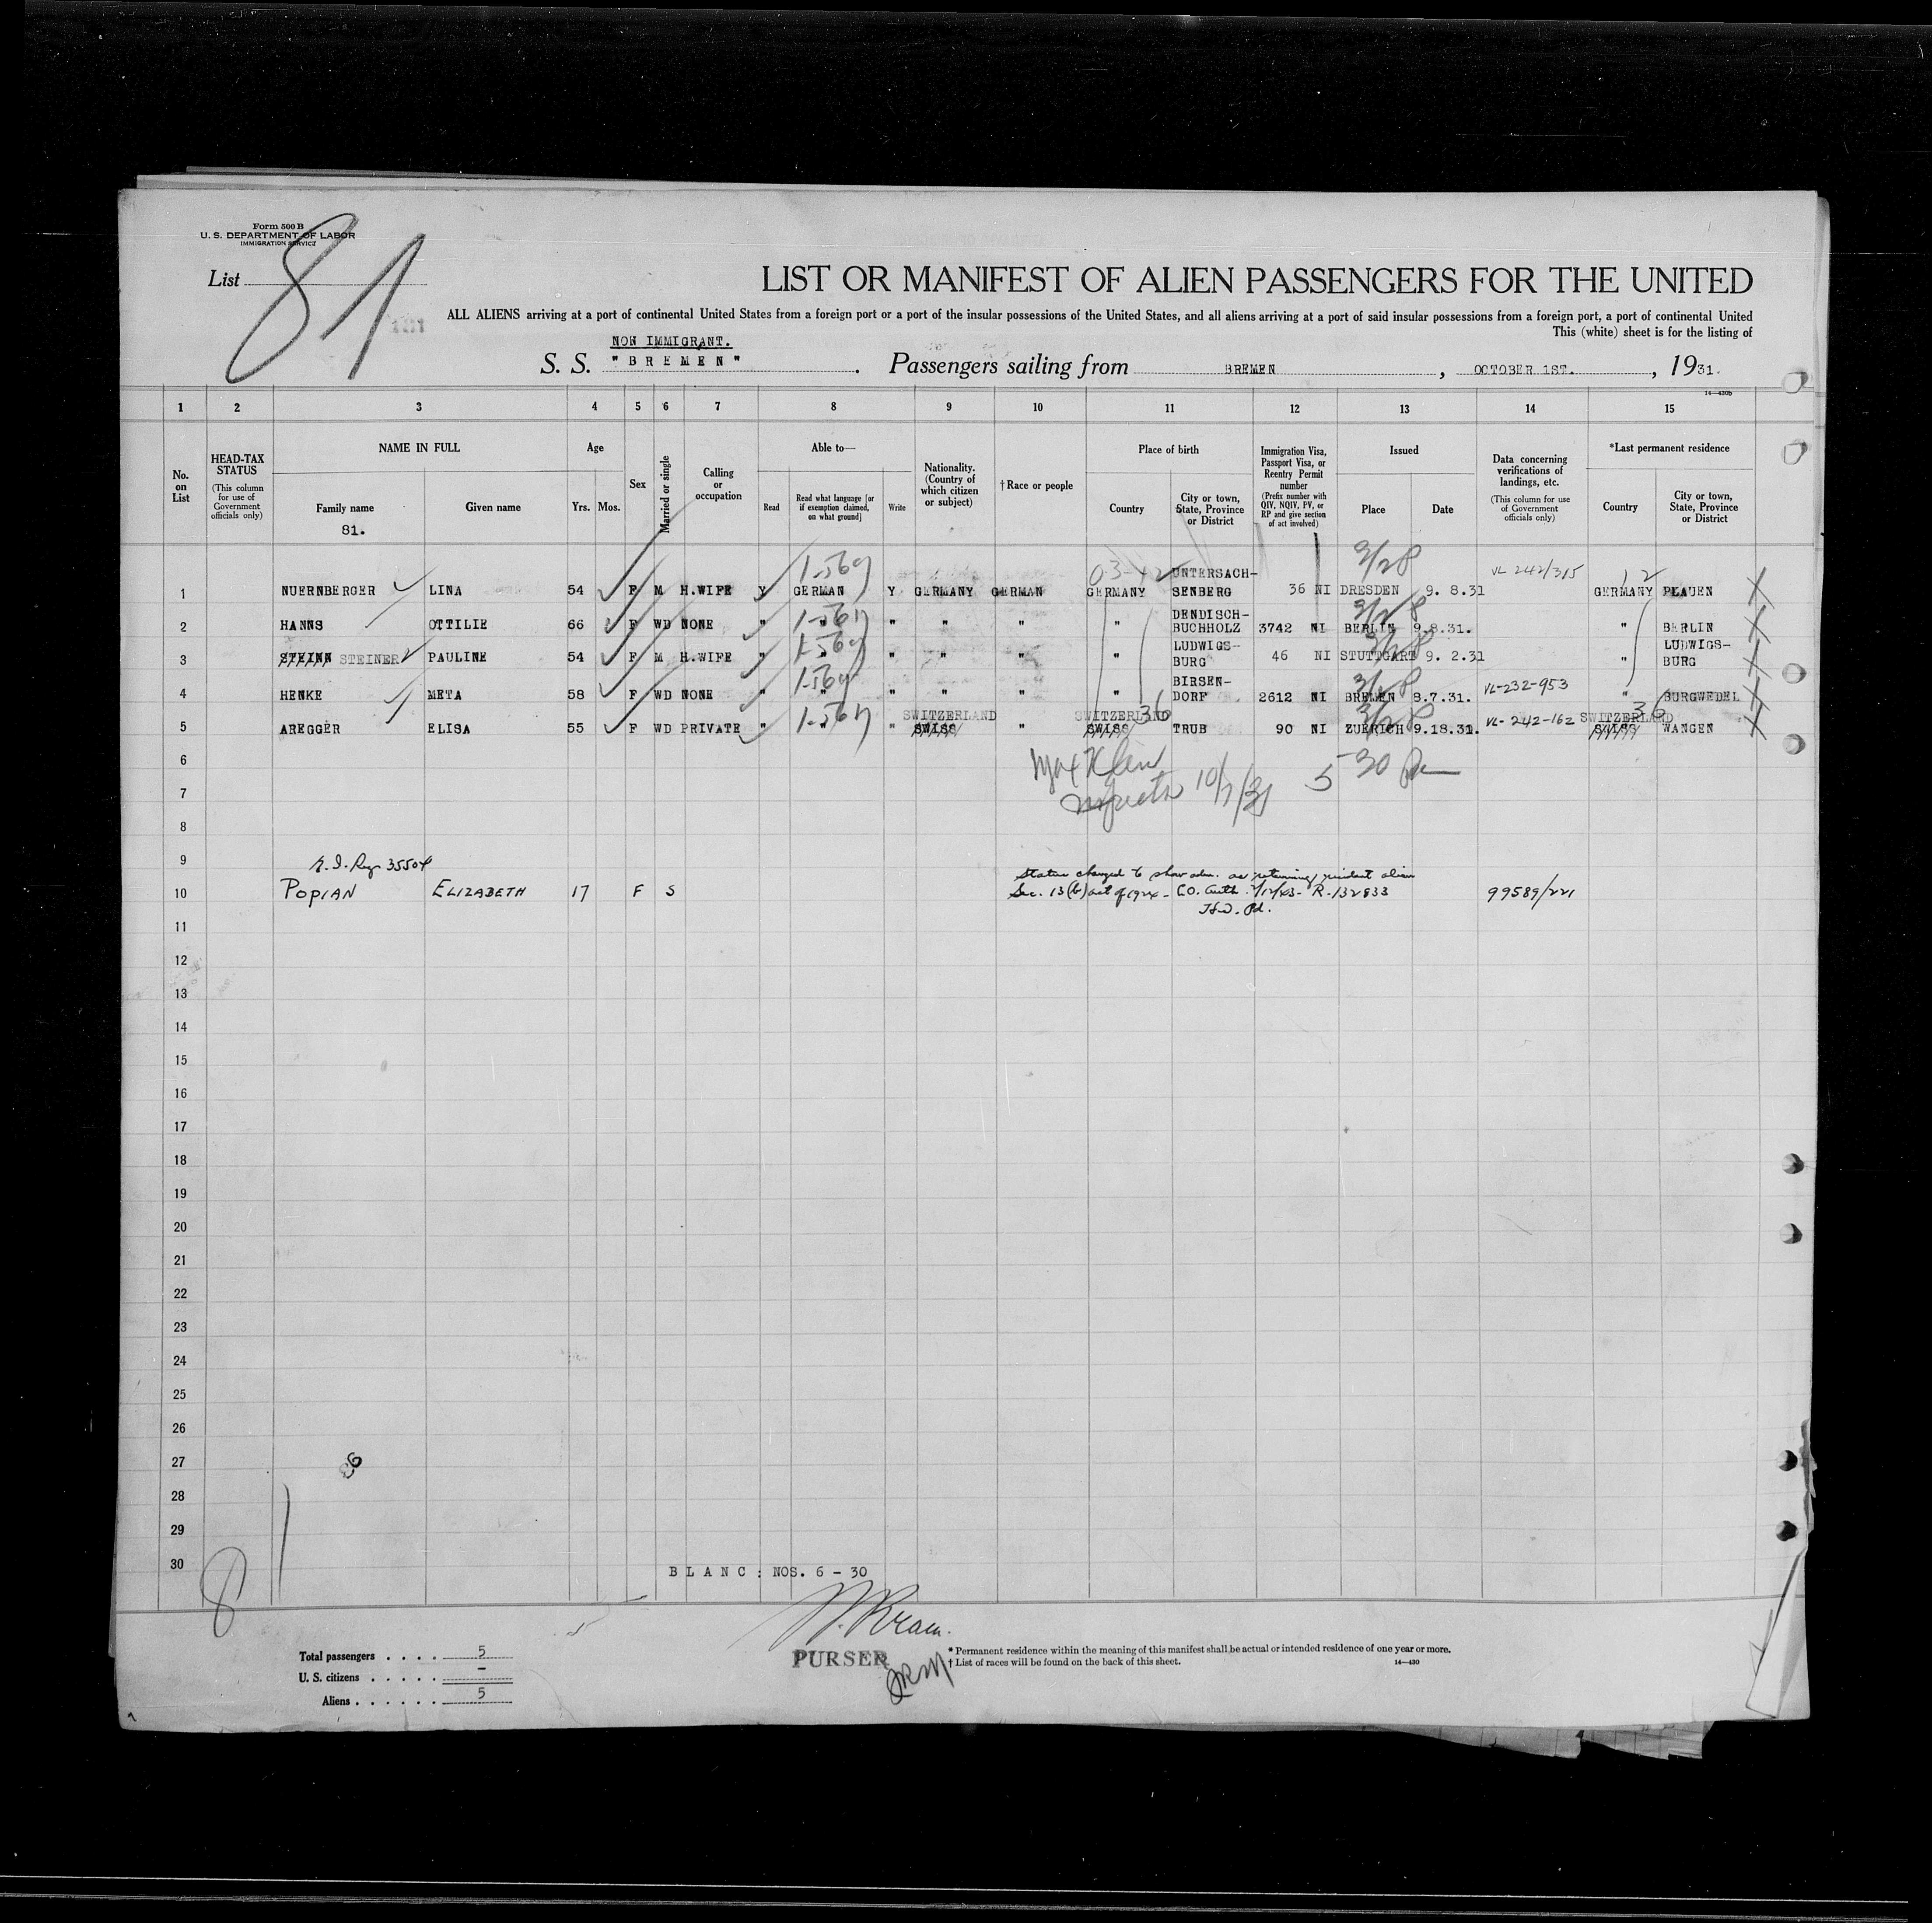 Form 500 B
U. S. DEPARTMENT OF LABOR
IMMIGRATION SERVICE
List 81
LIST OR MANIFEST OF ALIEN PASSENGERS FOR THE UNITED
ALL ALIENS arriving at a port of continental United States from a foreign port or a port of the insular possessions of the United States, and all aliens arriving at a port of said insular possessions from a foreign port, a port of continental United
This (white) sheet is for the listing of
NON IMMIGRANT.
S. S. "BREMEN". Passengers sailing from BREMEN, OCTOBER 1ST., 1931.
14—430b
1 2 3 4 5 6 7 8 9 10 11 12 13 14 15
No. on List
HEAD-TAX STATUS (This column for use of Government officials only)
NAME IN FULL Family name Given name
81.
Age Yrs. Mos.
Sex
Married or single
Calling or occupation
Able to— Read Read what language [or if exemption claimed, on what ground] Write
Nationality. (Country of which citizen or subject)
† Race or people
Place of birth Country City or town, State, Province or District
Immigration Visa, Passport Visa, or Reentry Permit number (Prefix number with QIV, NQIV, PV, or RP and give section of act involved)
Issued Place Date
Data concerning verifications of landings, etc. (This column for use of Government officials only)
*Last permanent residence Country City or town, State, Province or District
1 NUERNBERGER LINA 54 F M H.WIFE Y GERMAN Y GERMANY GERMAN GERMANY UNTERSACH-SENBERG 36 NI DRESDEN 9. 8.31 VL 242/315 GERMANY PLAUEN
2 HANNS OTTILIE 66 F WD NONE " " " " " " DENDISCH-BUCHHOLZ 3742 NI BERLIN 9.8.31. " BERLIN
3 STEINN STEINER PAULINE 54 F M H.WIFE " " " " " " LUDWIGS-BURG 46 NI STUTTGART 9. 2.31 " LUDWIGS-BURG
4 HENKE META 58 F WD NONE " " " " " " BIRSEN-DORF 2612 NI BREMEN 8.7.31. VL-232-953 " BURGWEDEL
5 AREGGER ELISA 55 F WD PRIVATE " " " SWISS SWITZERLAND " SWISS SWITZERLAND 36 TRUB 90 NI ZUERICH 9.18.31. VL-242-162 SWISS SWITZERLAND 36 WANGEN
6
5 30
7
10/7/31
8
9
Reg 35504
Status changed to show adm. as returning resident alien
10 POPIAN ELIZABETH 17 F S Sec. 13(b) act of 1924 - C.O. Auth. 7/12/43 - R-132833 99589/221
H.T. Pd.
11
12
13
14
15
16
17
18
19
20
21
22
23
24
25
26
27
28
29
30
BLANC: NOS. 6 - 30
PURSER
Total passengers . . . . 5
U. S. citizens . . . . . –
Aliens . . . . . . 5
* Permanent residence within the meaning of this manifest shall be actual or intended residence of one year or more.
† List of races will be found on the back of this sheet.
14—430